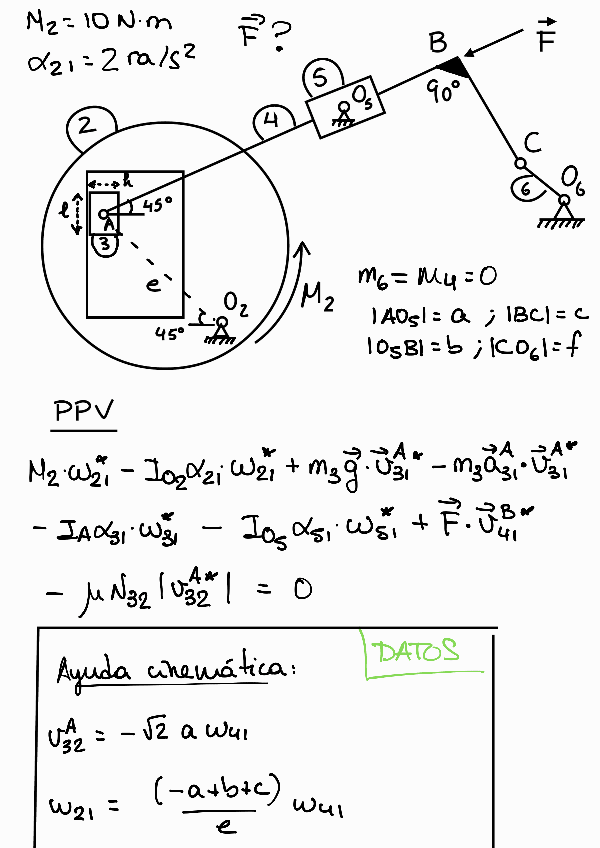 M₂ = 10 N·m
α₂₁ = 2 ra/s²
F⃗ ?
B
F⃗
90°
5
O₅
4
2
C
6
O₆
h
l
A
45°
3
e
O₂
45°
M₂
m₆ = M₄ = 0
|AO₅| = a ; |BC| = c
|O₅B| = b ; |CO₆| = f
PPV
M₂·ω₂₁* − I_O₂ α₂₁·ω₂₁* + m₃ g⃗·v⃗₃₁^A* − m₃ a⃗₃₁^A·v⃗₃₁^A*
− I_A α₃₁·ω₃₁* − I_O₅ α₅₁·ω₅₁* + F⃗·v⃗₄₁^B*
− μ N₃₂ |v₃₂^A*| = 0
DATOS
Ayuda cinemática:
v₃₂^A = −√2 a ω₄₁
ω₂₁ = (−a+b+c)/e ω₄₁